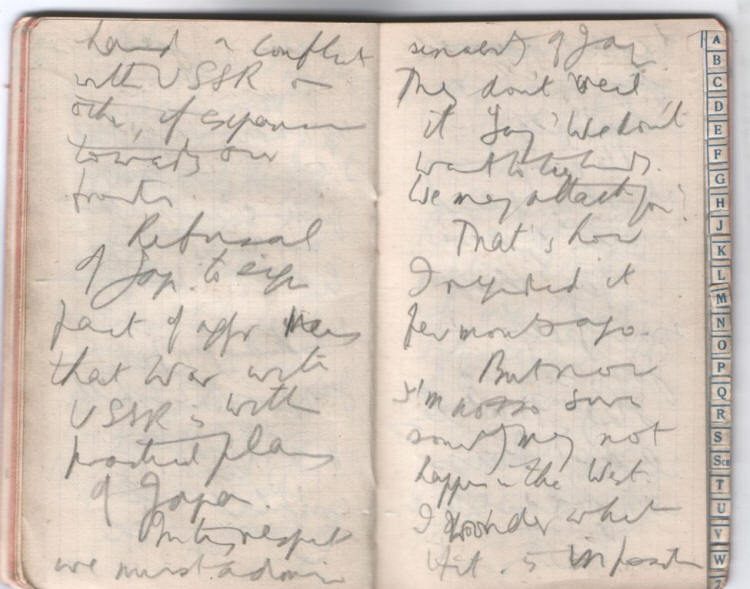 hand a conflict
with USSR on
other, of expansion
towards our
frontier.
Refusal
of Jap. to sign
pact of aggr means
that war with
USSR is with
practical plans
of Japan.
In this respect
we must admire
sincerity of Jap.
They don't
it. Say "We don't
want to tie hands.
We may attack you".
That's how
I regarded it
few months ago.
But now
I'm not so sure
something may not
happen in the West.
I wonder what
Hit. is
A
B
C
D
E
F
G
H
J
K
L
M
N
O
P
Q
R
S
T
U
V
W